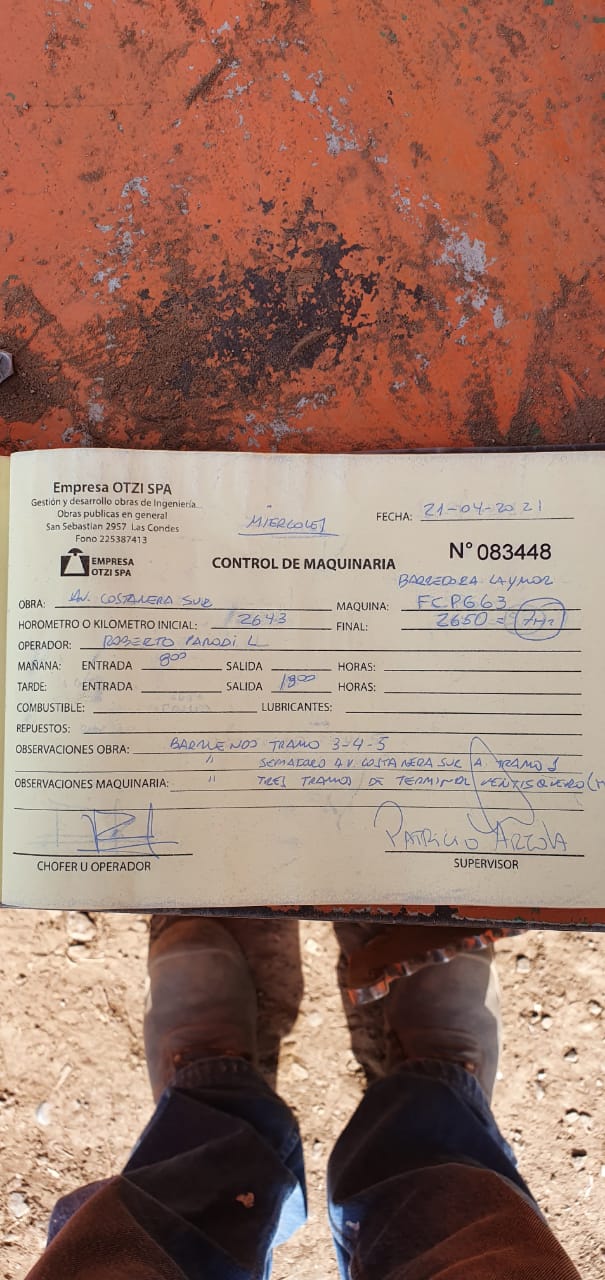 Empresa OTZI SPA
Gestión y desarrollo obras de Ingeniería
Obras publicas en general
San Sebastian 2957 Las Condes
Fono 225387413
EMPRESA
OTZI SPA
MIERCOLES
FECHA: 21-04-2021
CONTROL DE MAQUINARIA
N° 083448
BARREDORA LAYMOR
OBRA: AV. COSTANERA SUR MAQUINA: FCPG63
HOROMETRO O KILOMETRO INICIAL: 2643 FINAL: 2650 = 7Hr
OPERADOR: ROBERTO PARODI L
MAÑANA: ENTRADA 8:00 SALIDA HORAS:
TARDE: ENTRADA SALIDA 18:00 HORAS:
COMBUSTIBLE: LUBRICANTES:
REPUESTOS:
OBSERVACIONES OBRA: BARRIENDO TRAMO 3-4-5
" SEMAFORO AV. COSTANERA SUR A. TRAMO
OBSERVACIONES MAQUINARIA: " TRES TRAMOS DE TERMINAL VENTISQUERO
CHOFER U OPERADOR
PATRICIO ARZOLA
SUPERVISOR